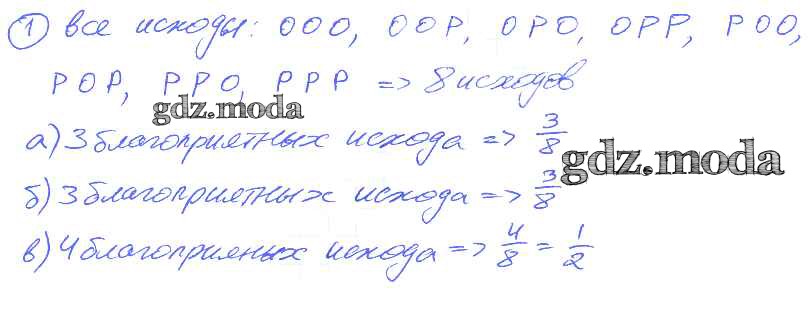 ① Все исходы: ООО, ООР, ОРО, ОРР, РОО,
РОР, РРО, РРР => 8 исходов
gdz.moda
а) 3 благоприятных исхода => 3/8
gdz.moda
б) 3 благоприятных исхода => 3/8
в) 4 благоприяных исхода => 4/8 = 1/2